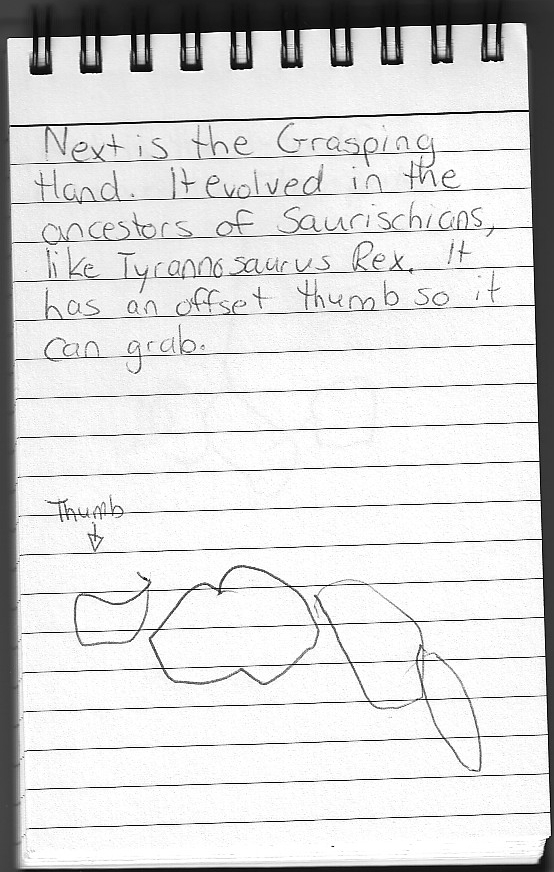 Next is the Grasping
Hand. It evolved in the
ancestors of Saurischians,
like Tyrannosaurus Rex. It
has an offset thumb so it
can grab.
Thumb